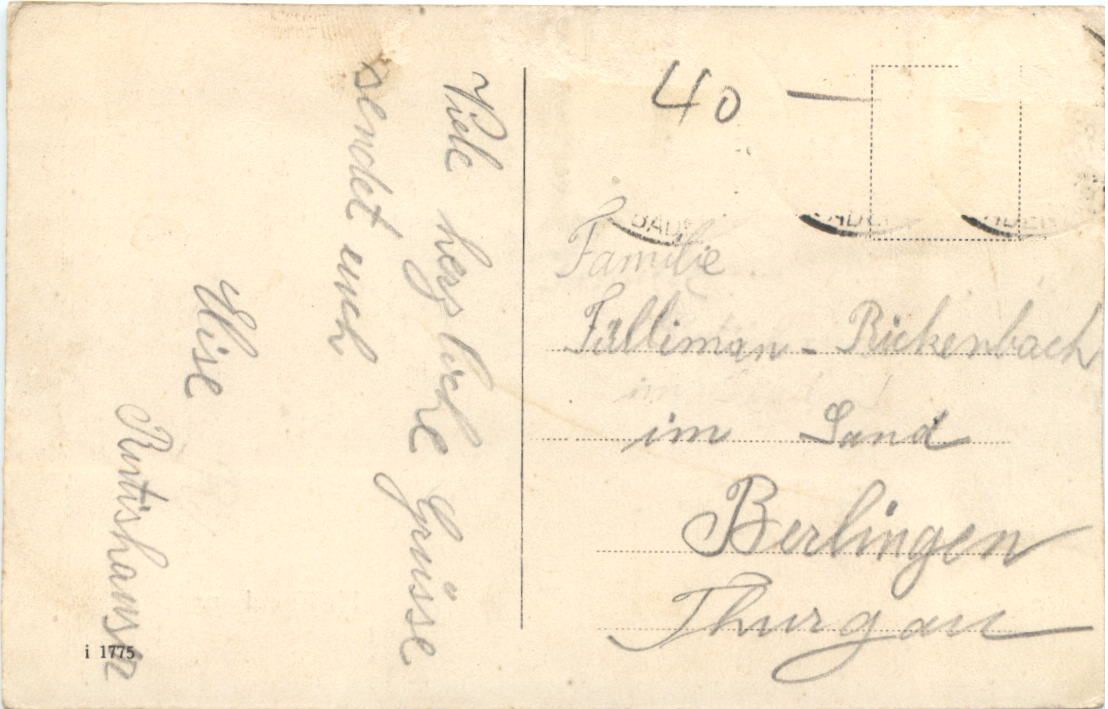 Viele herzliche Grüsse
sendet euch
Elise
Rutishauser
40
BADEN
BADEN
BADEN
Familie
Fülliman - Rickenbach
im Sand
Berlingen
Thurgau
i 1775